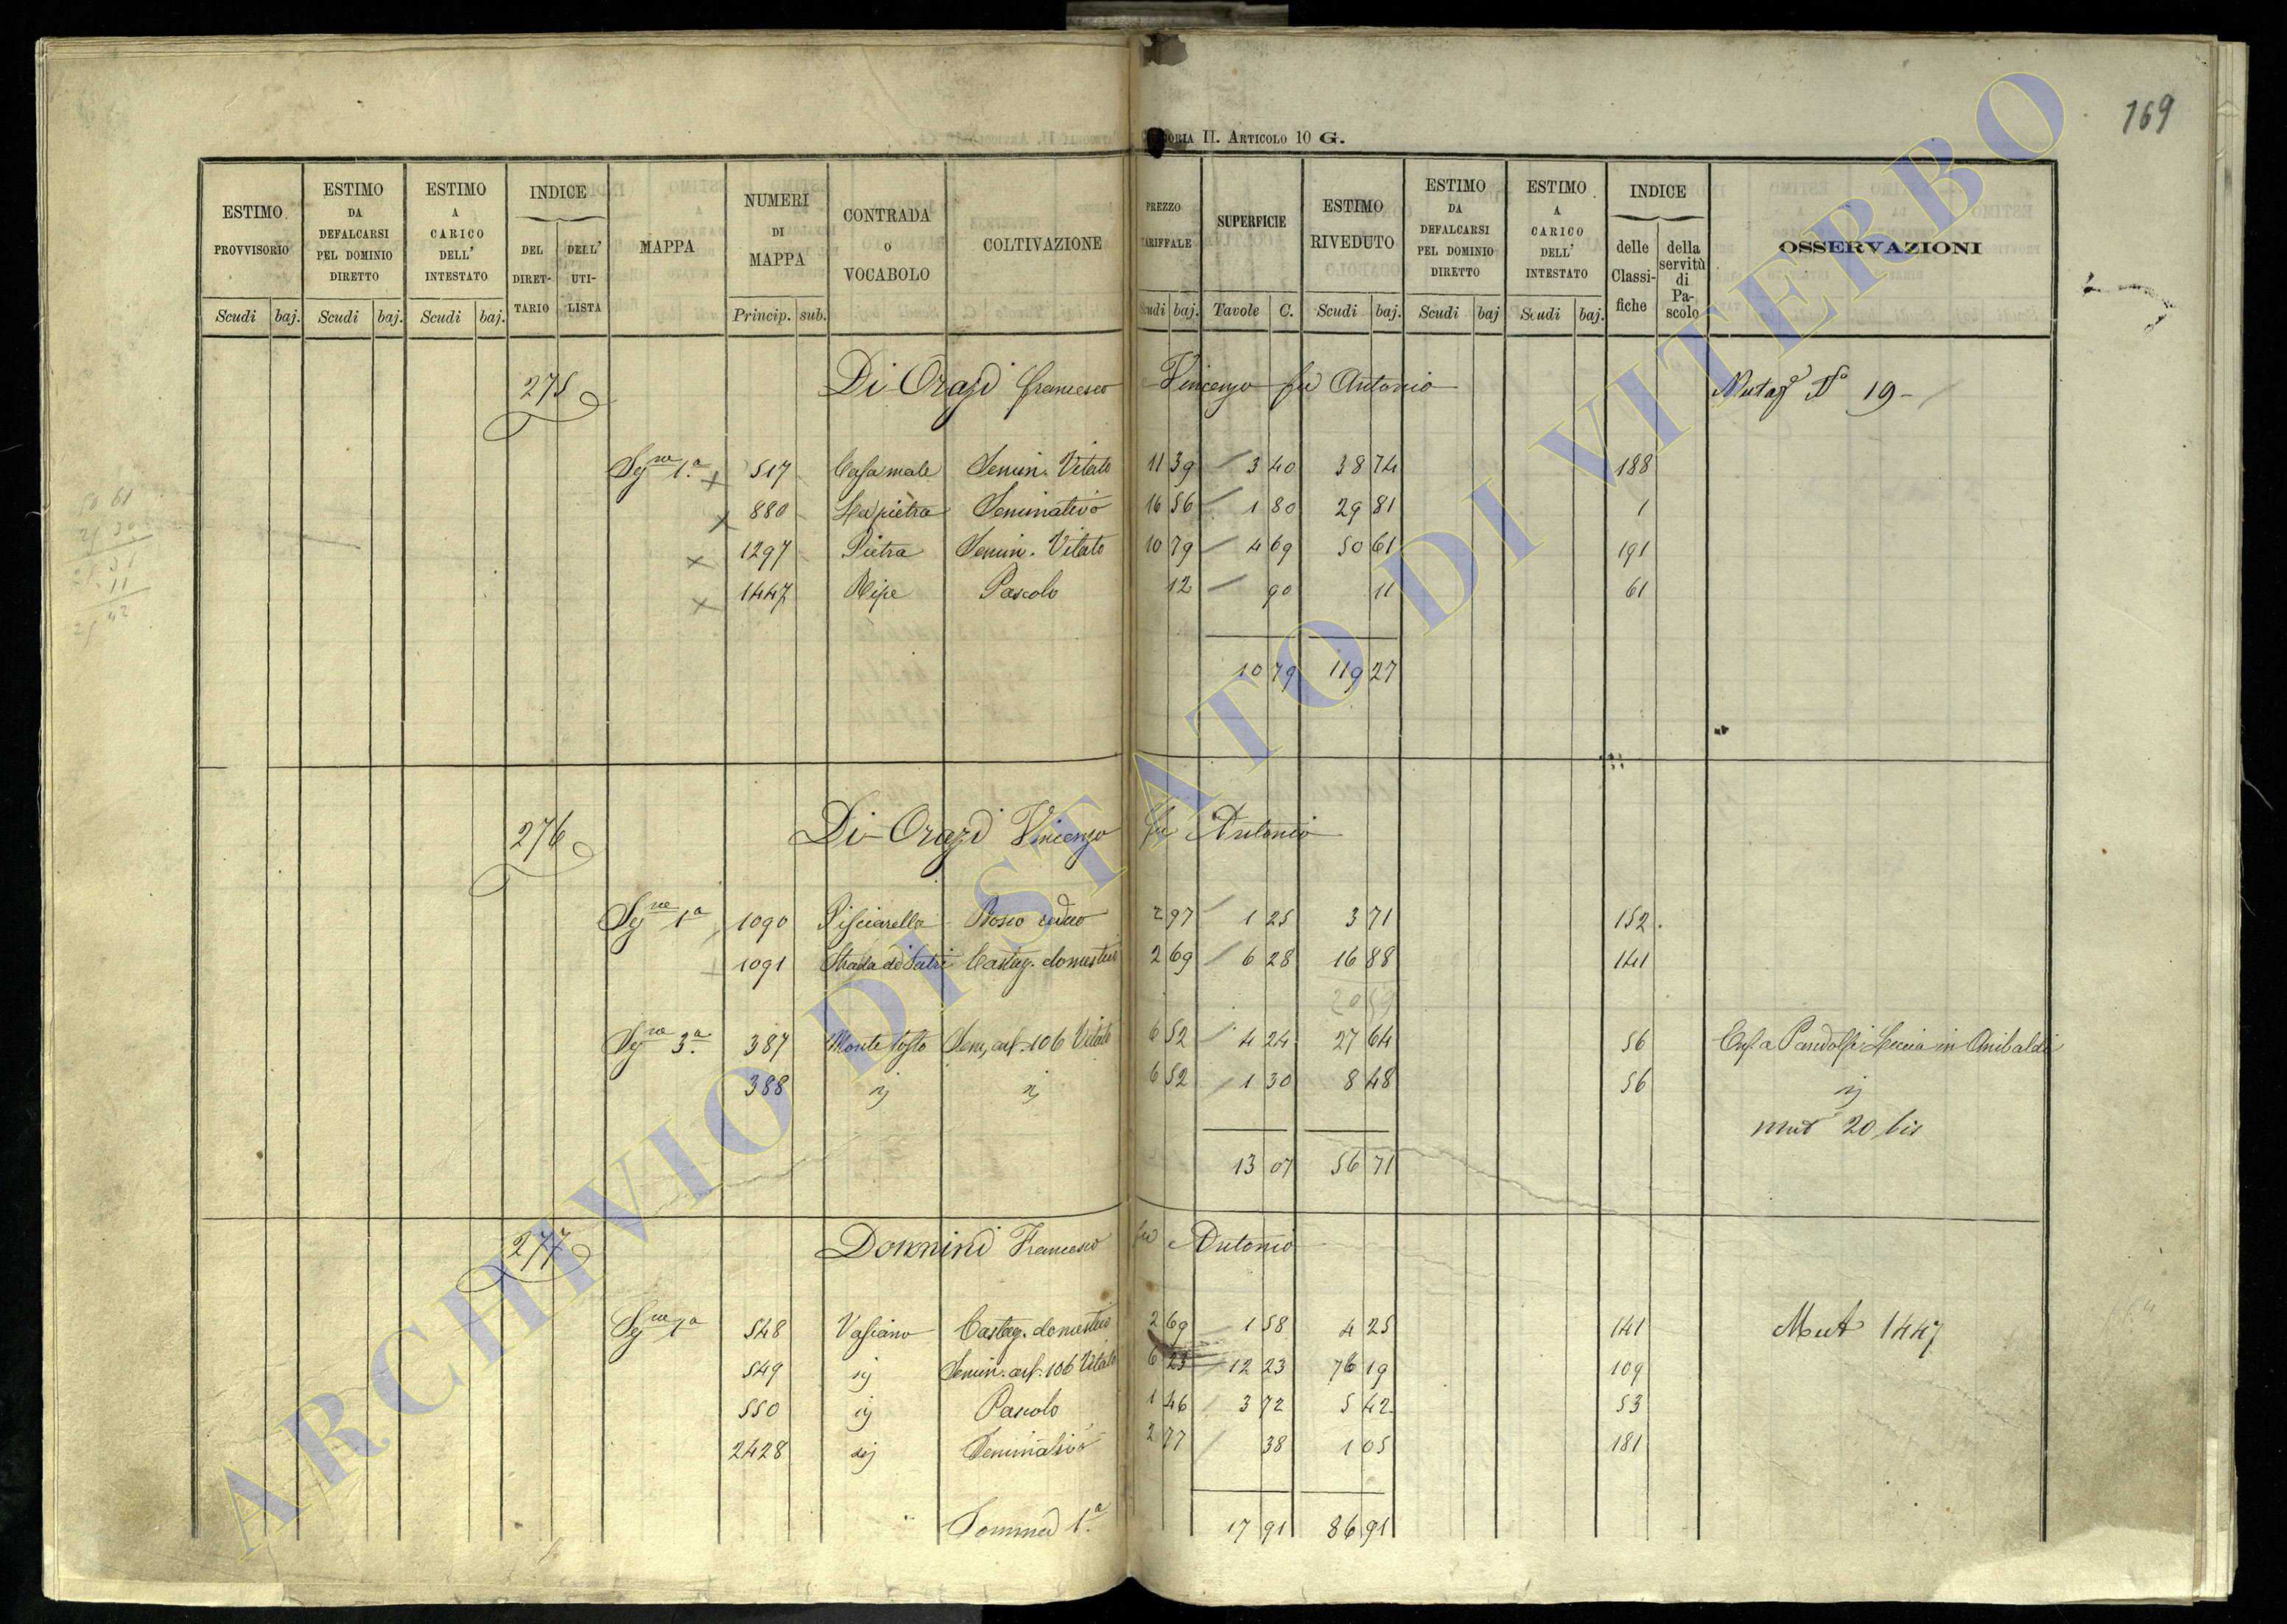 169
II. Articolo 10 G.
ESTIMO PROVVISORIO
ESTIMO DA DEFALCARSI PEL DOMINIO DIRETTO
ESTIMO A CARICO DELL' INTESTATO
INDICE
DEL DIRET-TARIO
DELL' UTI-LISTA
MAPPA
NUMERI DI MAPPA
CONTRADA o VOCABOLO
COLTIVAZIONE
PREZZO TARIFFALE
SUPERFICIE
ESTIMO RIVEDUTO
ESTIMO DA DEFALCARSI PEL DOMINIO DIRETTO
ESTIMO A CARICO DELL' INTESTATO
INDICE
delle Classi-fiche
della servitù di Pa-scolo
OSSERVAZIONI
Scudi baj. Scudi baj. Scudi baj. Princip. sub. Scudi baj. Tavole C. Scudi baj. Scudi baj Scudi baj.
275 Di Orazi Francesco Vincenzo fu Antonio Mutaz.e N.o 19
Sez.ne 1.a 517 Casamale Semin. Vitato 11 39 3 40 38 74 188
880 La pietra Seminativo 16 56 1 80 29 81 1
1297 Pietra Semin. Vitato 10 79 4 69 50 61 191
1447 Ripe Pascolo 12 90 11 61
10 79 119 27
276 Di Orazi Vincenzo fu Antonio
Sez.ne 1a 1090 Pisciarella Bosco ceduo 2 97 1 25 3 71 152
1091 Strada di Sutri Castag. domestico 2 69 6 28 16 88 141
20 59
Sez.ne 3.a 387 Monte Tosto Sem. asf. 106 Vitato 6 52 4 24 27 64 56 Enf.a Pandolfi Leccia in Anibaldi
388 ij ij 6 52 1 30 8 48 56 ij
mut 20 bis
13 07 56 71
277 Donnini Francesco fu Antonio
Sez.ne 1a 548 Vasiano Castag. domestico 2 69 1 58 4 25 141 Mut 1447
549 ij Semin. asf. 106 Vitato 6 23 12 23 76 19 109
550 ij Pascolo 1 46 3 72 5 42 53
2428 ij Seminativo 2 77 38 1 05 181
Somma 1.a 17 91 86 91
ARCHIVIO DI STATO DI VITERBO